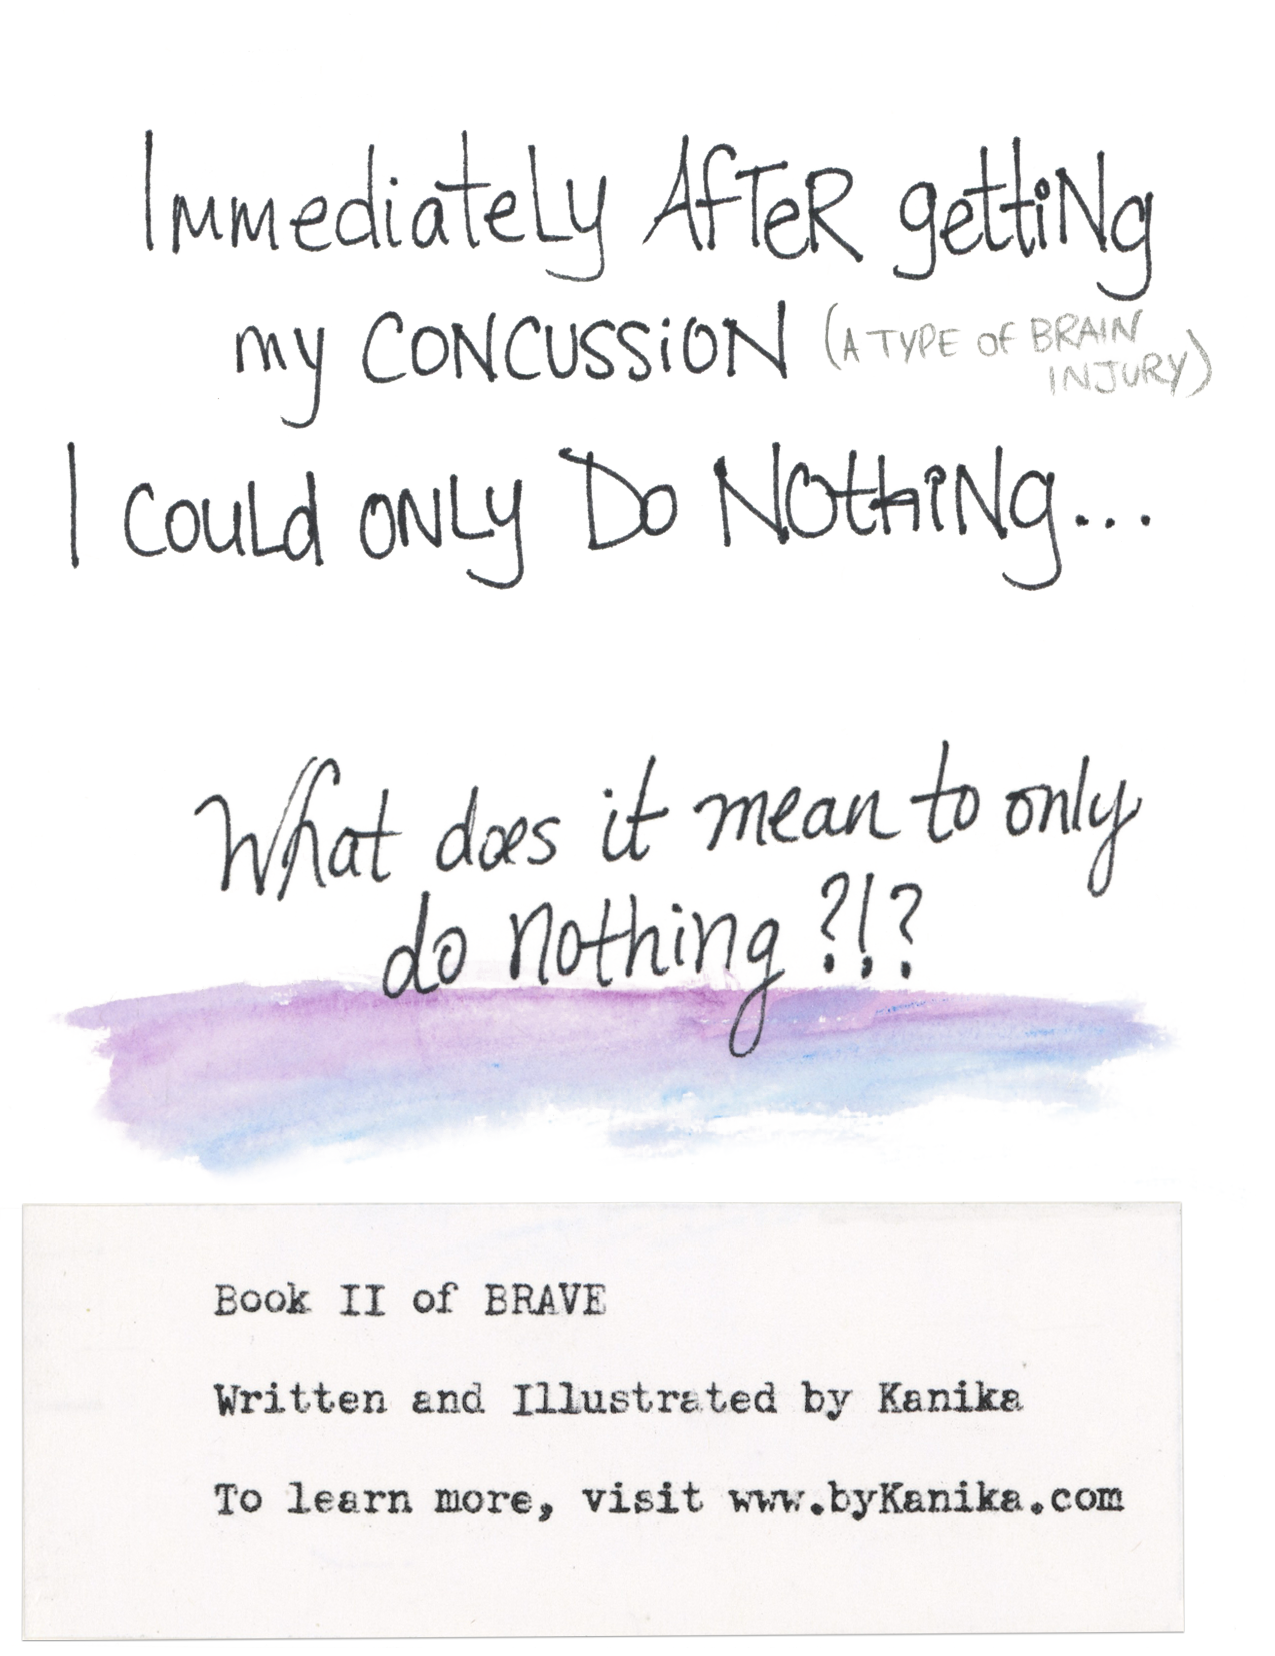 Immediately After getting
my CONCUSSION (A TYPE OF BRAIN
INJURY)
I COULD ONLY DO NOTHING...
What does it mean to only
do nothing?!?
Book II of BRAVE
Written and Illustrated by Kanika
To learn more, visit www.byKanika.com